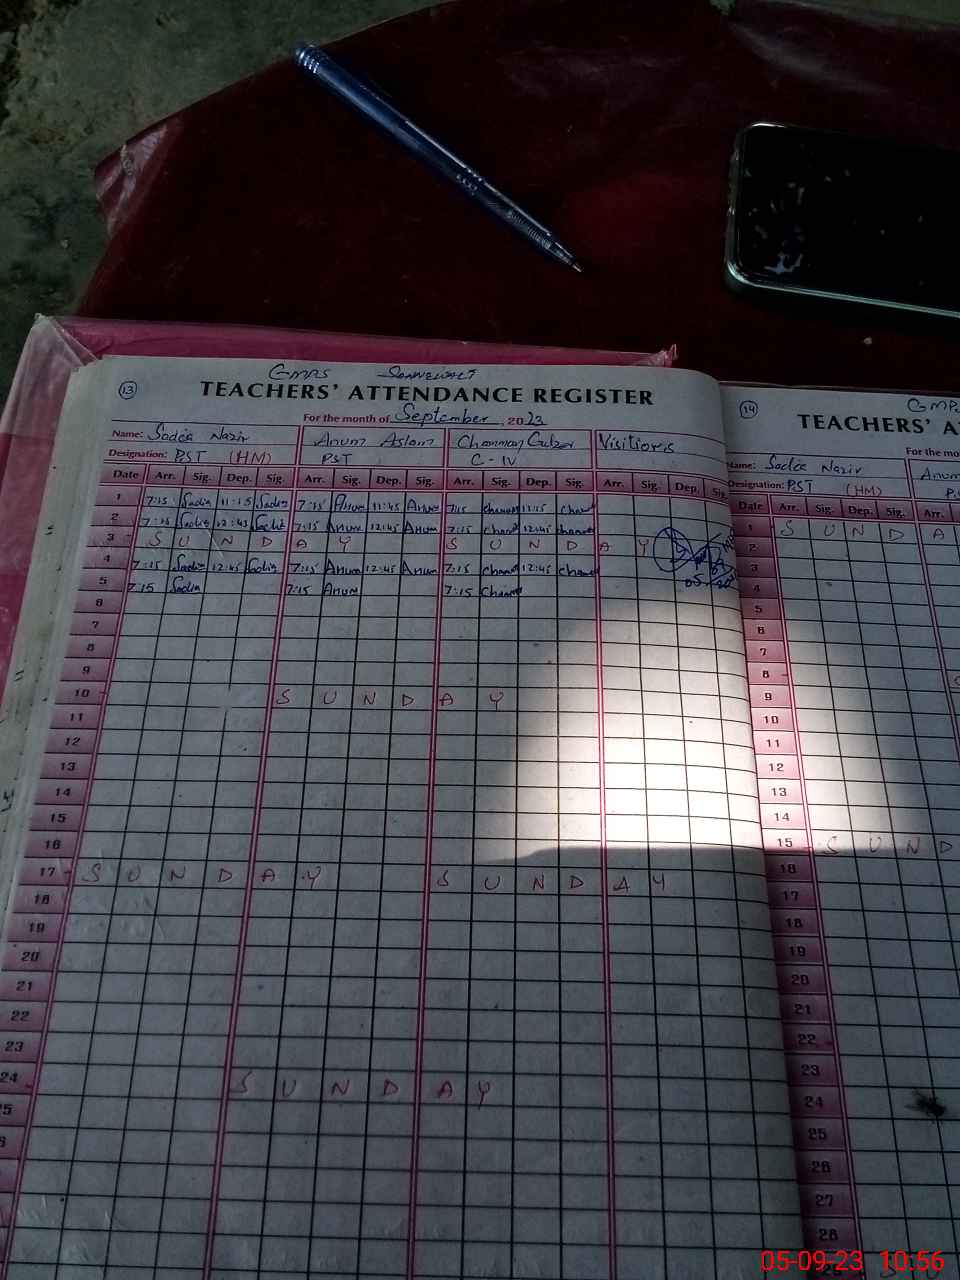 GMPS
13
TEACHERS' ATTENDANCE REGISTER
For the month of September, 2023
Name: Sadia Nazir Anum Aslam Chamman Gulzar Visitiors
Designation: PST (HM) PST C-IV
Date Arr. Sig. Dep. Sig. Arr. Sig. Dep. Sig. Arr. Sig. Dep. Sig. Arr. Sig. Dep. Sig.
1 7:15 Sadia 11:15 Sadia 7:15 Anum 11:45 Anum 7:15 Cham 11:15 Cham
2 7:15 Sadia 12:45 Sadia 7:15 Anum 12:45 Anum 7:15 Cham 12:45 Cham
3 SUNDAY SUNDAY
4 7:15 Sadia 12:45 Sadia 7:15 Anum 12:45 Anum 7:15 Cham 12:45 Cham
5 7:15 Sadia 7:15 Anum 7:15 Cham
6
7
8
9
10 SUNDAY
11
12
13
14
15
16
17 SUNDAY SUNDAY
18
19
20
21
22
23
24 SUNDAY
25
14
GMPS
TEACHERS' A
For the mo
Name: Sadia Nazir Anum
Designation: PST (HM)
Date Arr. Sig. Dep. Sig. Arr.
1 SUNDA
2
3
4
5
6
7
8
9
10
11
12
13
14
15 SUND
16
17
18
19
20
21
22
23
24
25
26
27
28
05-09-23 10:56